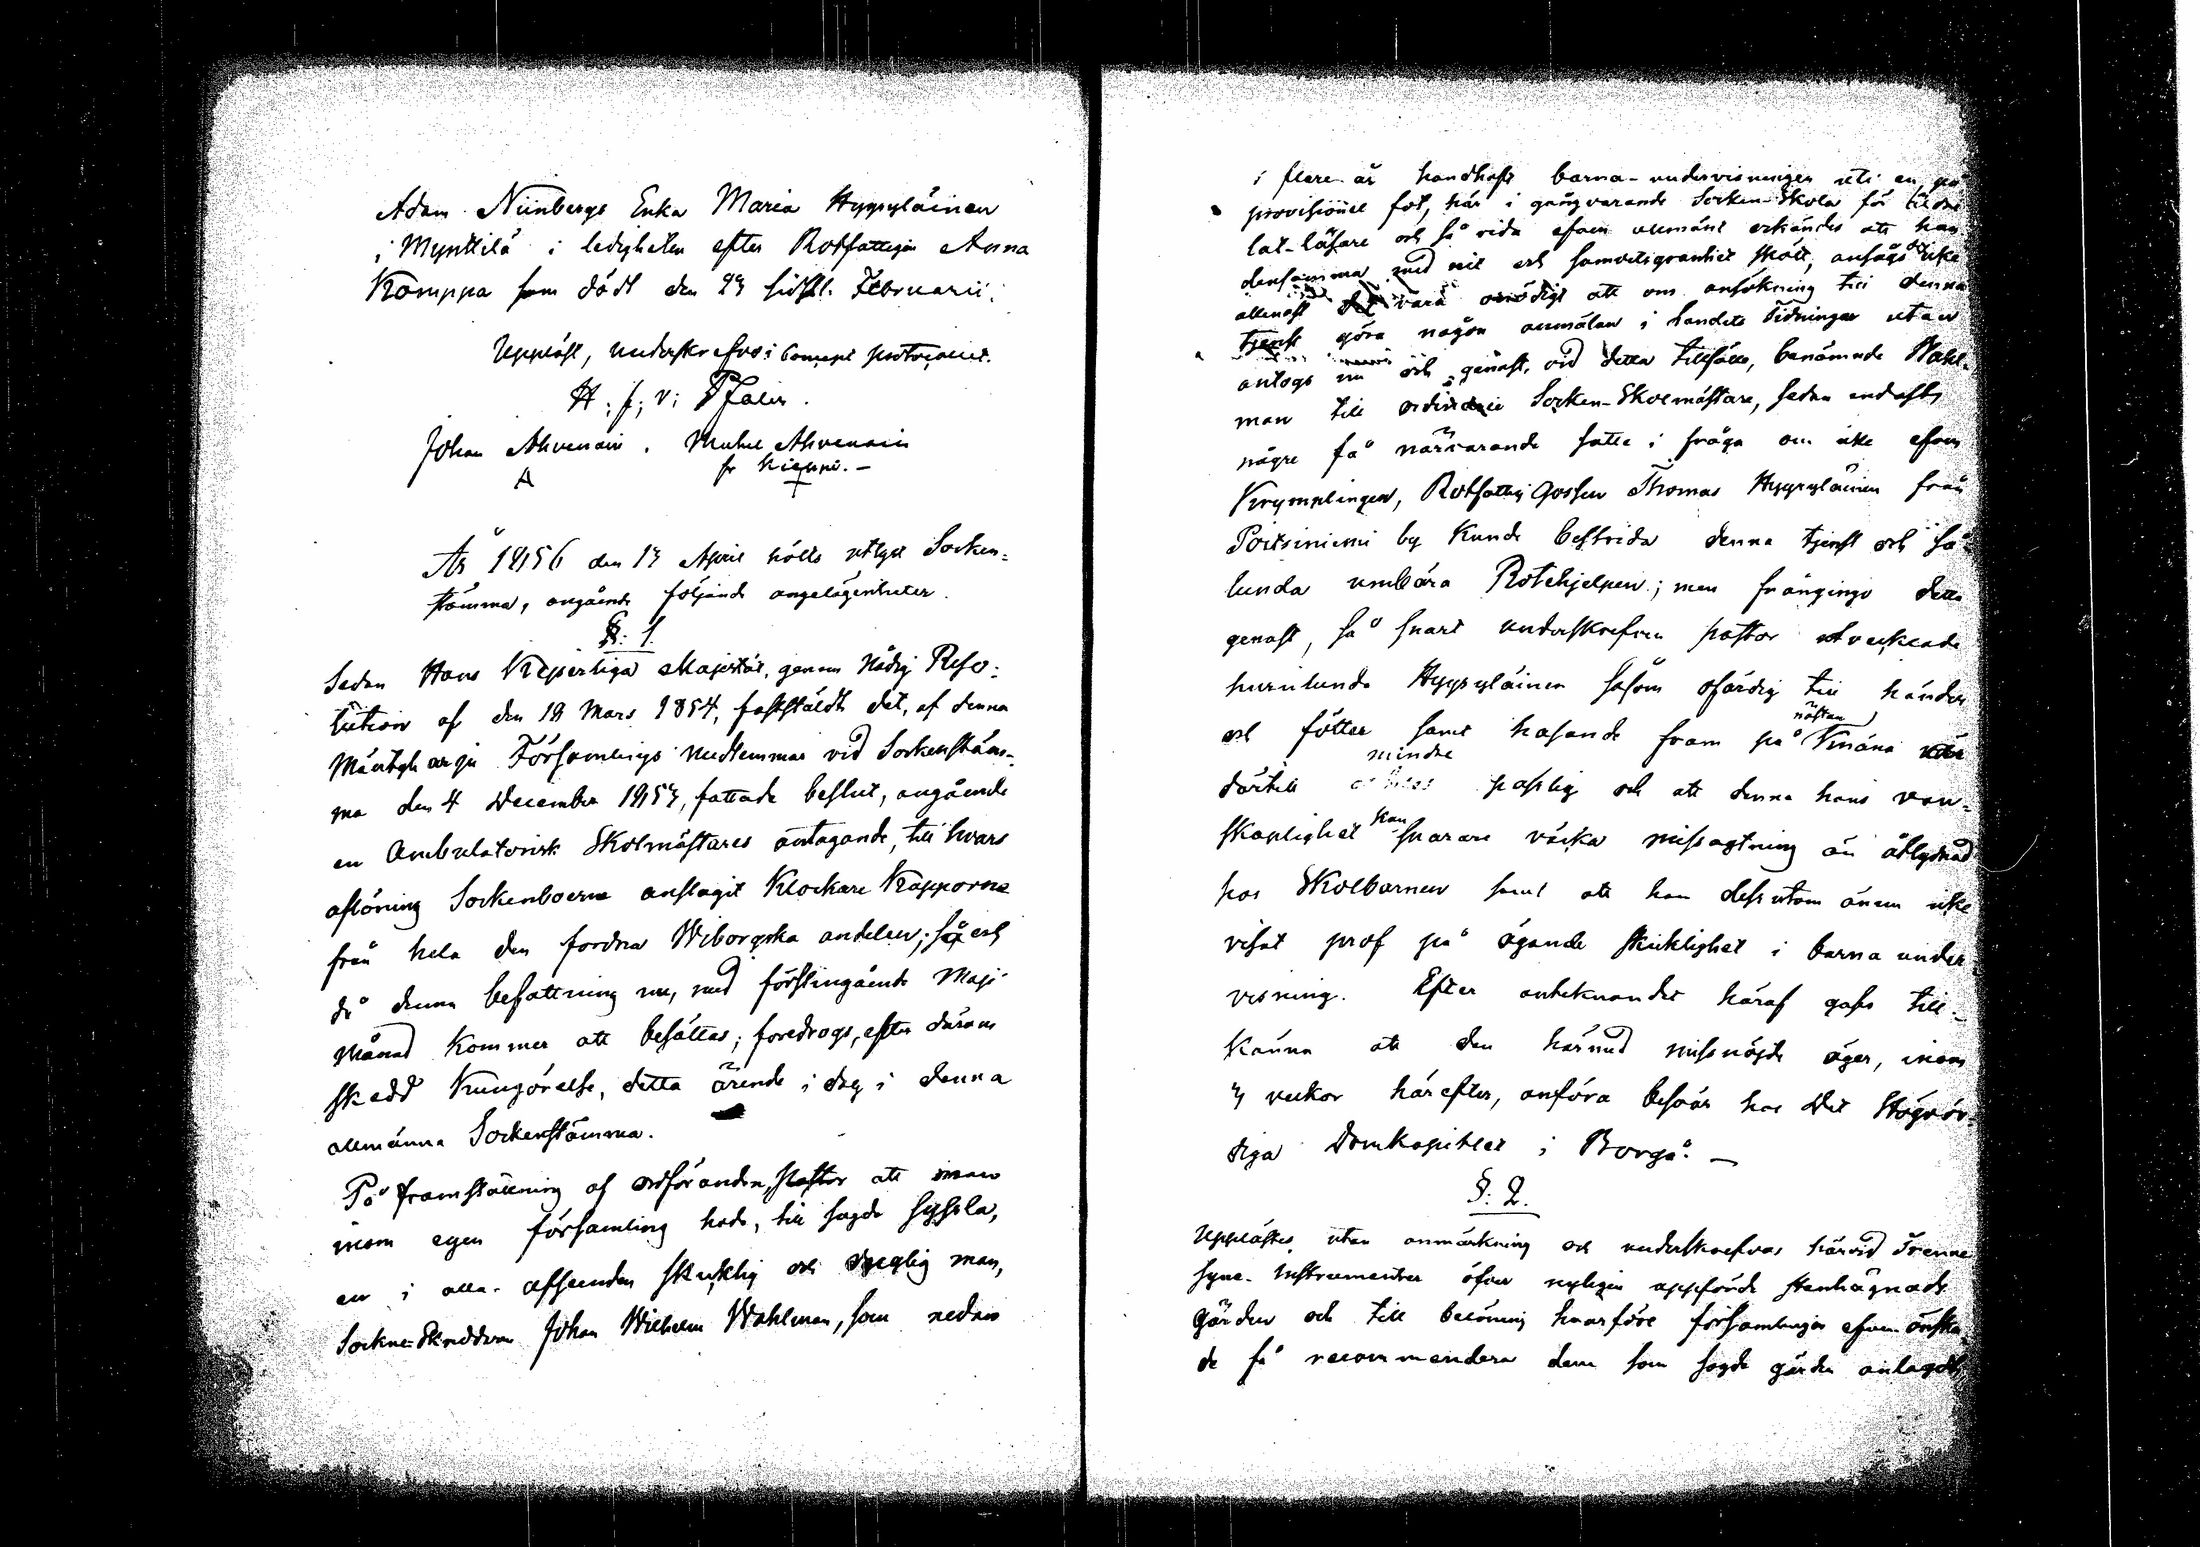 Adam Niinbergs Enka Maria Hyyryläinen
i Mynttilä i ledigheten efter Rotfattigin Anna
Komppa som dödt den 23 sidstl. Februarii.
Uppläst, underskrefvos i Concept protocollet.
H. f; v; PJalin.
Johan Ahvenain . Mickel Ahvenain
A fr Kiepni. —
År 1856 den 13 April hölls utlyst Socken-
stämma, angående följande angelägenheter.
§. 1.
Sedan Hans Kejserliga Majestät, genom Nådig Reso-
lution af den 18 Mars 1854, fastställdt det, af denna
Mäntyharju Församlings medlemmar vid Sockenstäm-
ma den 4 December 1853, fattade beslut, angående
en Ambulatorisk Skolmästares antagande, till hvars
aflöning Sockenboerne anslagit Klockare Kapporne
från hela den fordna Wiborgska andelen; så och
då denna befattning nu, med förstingående Maji
Månad kommer att besättas; foredrogs, efter därom
skedd Kungörelse, detta ärende i dag i denna
allmänna Sockenstämma.
På framställning af ordföranden, Pastor att man
inom egen församling hade, till sagde syssla,
en i alla afseenden skicklig och duglig man,
Sockne-Skräddaren Johan Wilhelm Wahlman, som redan
i flere år handhaft barna-undervisningen uti en på
provisionel fot, här i gång varande Socken-Skola för
lat-läsare och så vida efven allmänt erkändes att han
densamma med nit och samvetsgranhet skött, ansågs det icke
allenast vara onödigt att om ansökning till denna
tjenst göra någon anmälan i landets Tidningar utan
antogs nu och genast, vid detta tillfälle, benämnde Wahl-
man till ordinarie Socken-Skolmästare, sedan endast
någre få närvarande satte i fråga om icke efven
Krymplingen, Rotfattig Gossen Thomas Hyyryläinen från
Poitsiniemi by Kunde bestrida denna tjenst och så-
lunda umbära Rotehjelpen; men frångingo detta
genast, så snart underskrefven pastor utvecklade
hurulunda Hyyryläinen såsom ofärdig till händer
och fötter samt hasande fram på nästan Knäna vore
därtill mindre passlig och att denna hans van-
skaplighet kan snarare väcka missagtning än åtlydnad
hos Skolbarnen samt att han dessutom ännu icke
visat prof på ägande skicklighet i barna under-
visning. Efter antecknandet häraf gafs till-
känna att den härmed missnöjde äger, inom
3 veckor härefter, anföra besvär hos Det Högvör-
diga Domkapitlet i Borgå. —
§. 2.
Upplästes utan anmärkning och underskrefvos härvid Trenne
syne-Instrumenter öfver nyligen uppförde Stenhägnads
Gärden och till belöning hvarföre församlingen efven önska-
de få recommendera dem som sagde gärden anlagdt,